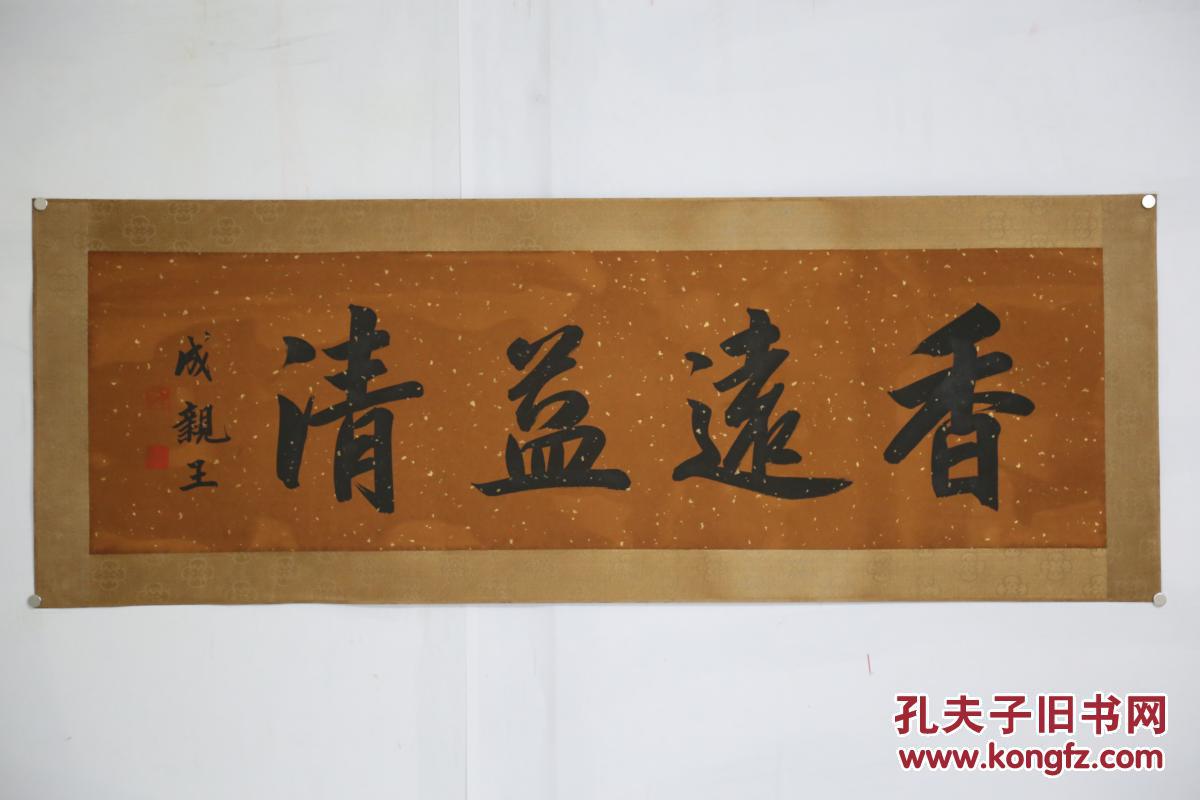 香遠益清
成親王
孔夫子旧书网
www.kongfz.com